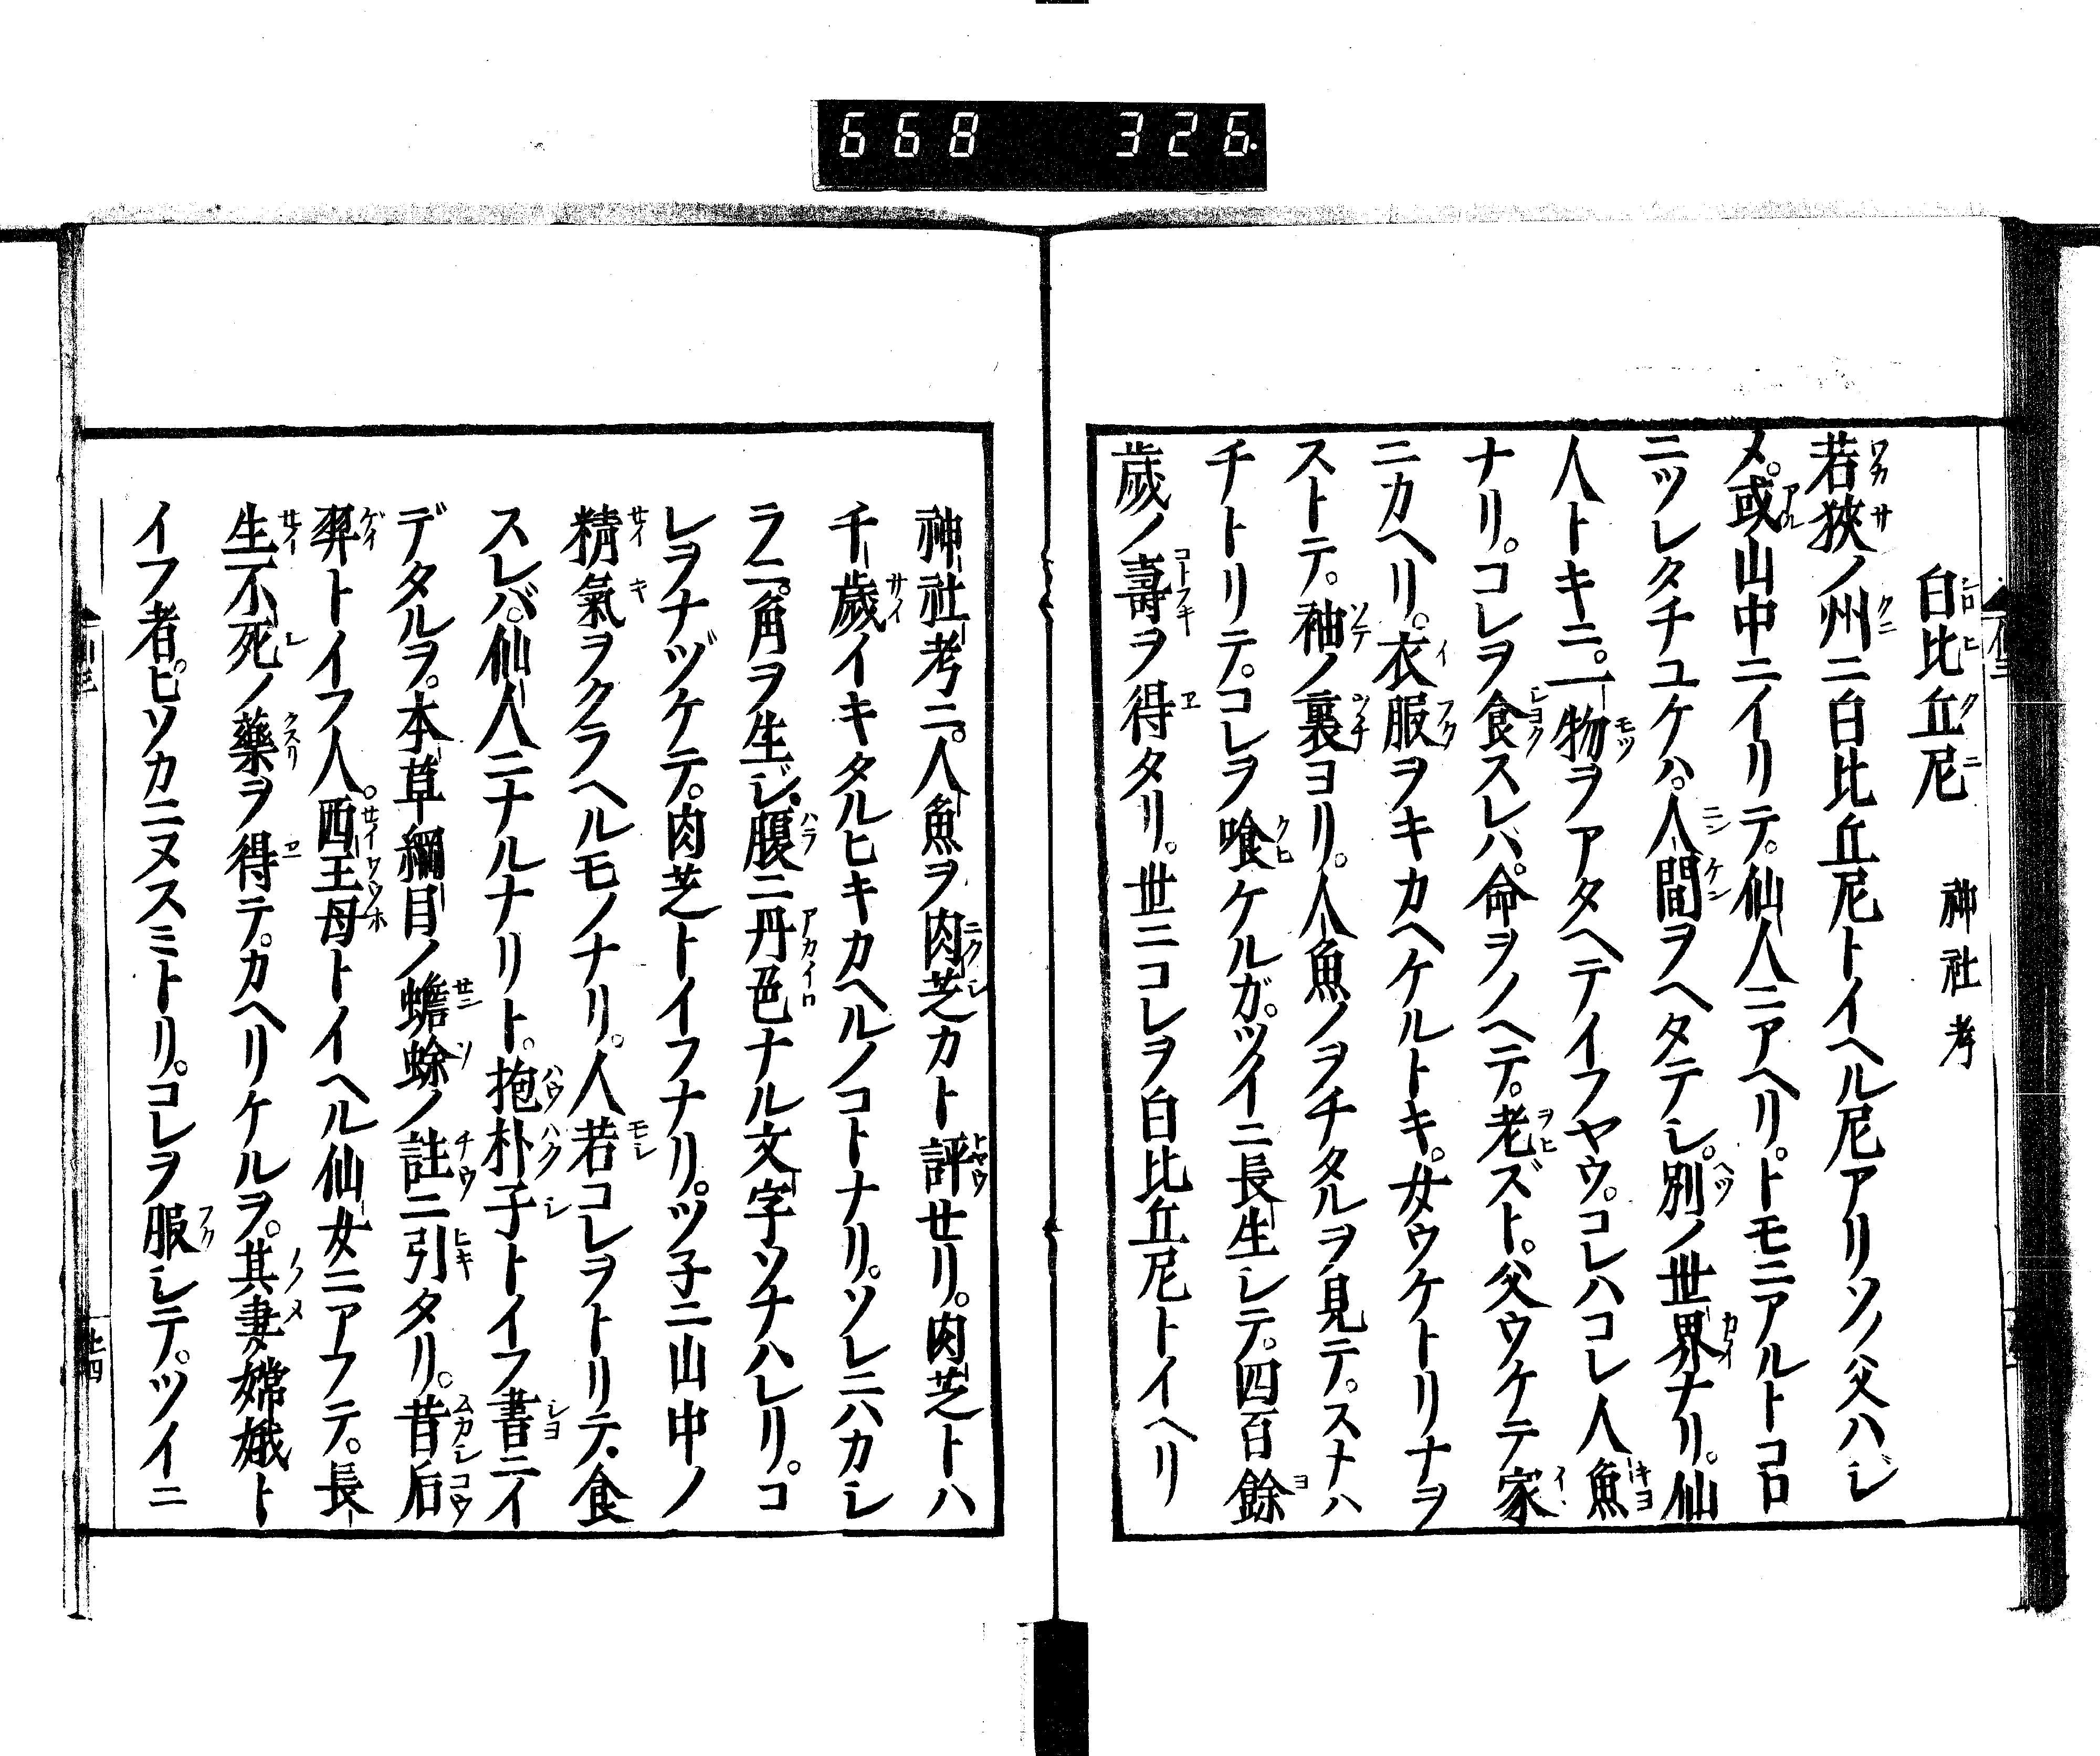 668 326
白比丘尼 神社考
若狹ノ州ニ白比丘尼トイヘル尼アリソノ父ハジ
メ。或山中ニイリテ。仙人ニアヘリ。トモニアルトコロ
ニツレタチユケハ。人間ヲヘタテシ。別ノ世界ナリ。仙
人トキニ。一物ヲアタヘテイフヤウ。コレハコレ人魚
ナリ。コレヲ食スレバ。命ヲノヘテ。老ズト。父ウケテ家
ニカヘリ。衣服ヲキカヘケルトキ。女ウケトリナヲ
ストテ。袖ノ裏ヨリ。人魚ノヲチタルヲ見テ。スナハ
チトリテ。コレヲ喰ケルガ。ツイニ長生レテ。四百餘
歲ノ壽ヲ得タリ。世ニコレヲ白比丘尼トイヘリ
神社考ニ。人魚ヲ肉芝カト評セリ。肉芝トハ
千歲イキタルヒキカヘルノコトナリ。ソレニハカシ
ラニ。角ヲ生ジ。腹ニ丹色ナル文字ソナハレリ。コ
レヲナヅケテ。肉芝トイフナリ。ツ子ニ山中ノ
精氣ヲクラヘルモノナリ。人若コレヲトリテ。食
スレバ。仙人ニナルナリト。抱朴子トイフ書ニイ
デタルヲ。本草綱目ノ蟾蜍ノ註ニ引タリ。昔后
羿トイフ人。西王母トイヘル仙女ニアフテ。長
生不死ノ藥ヲ得テ。カヘリケルヲ。其妻嫦娥ト
イフ者。ヒソカニヌスミトリ。コレヲ服シテ。ツイニ
廿四